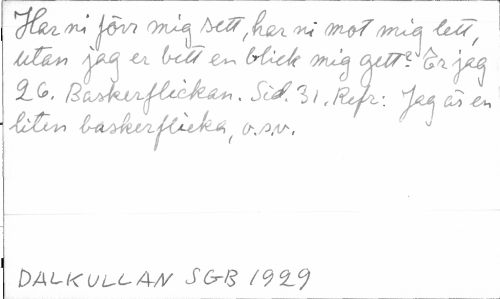 Har ni förr mig sett, har ni mot mig lett,
utan jag er bett en blick mig gett? Er jag
26. Baskerflickan. Sid. 31. Refr: Jag är en
liten baskerflicka, o.s.v.
DALKULLAN SGB 1929